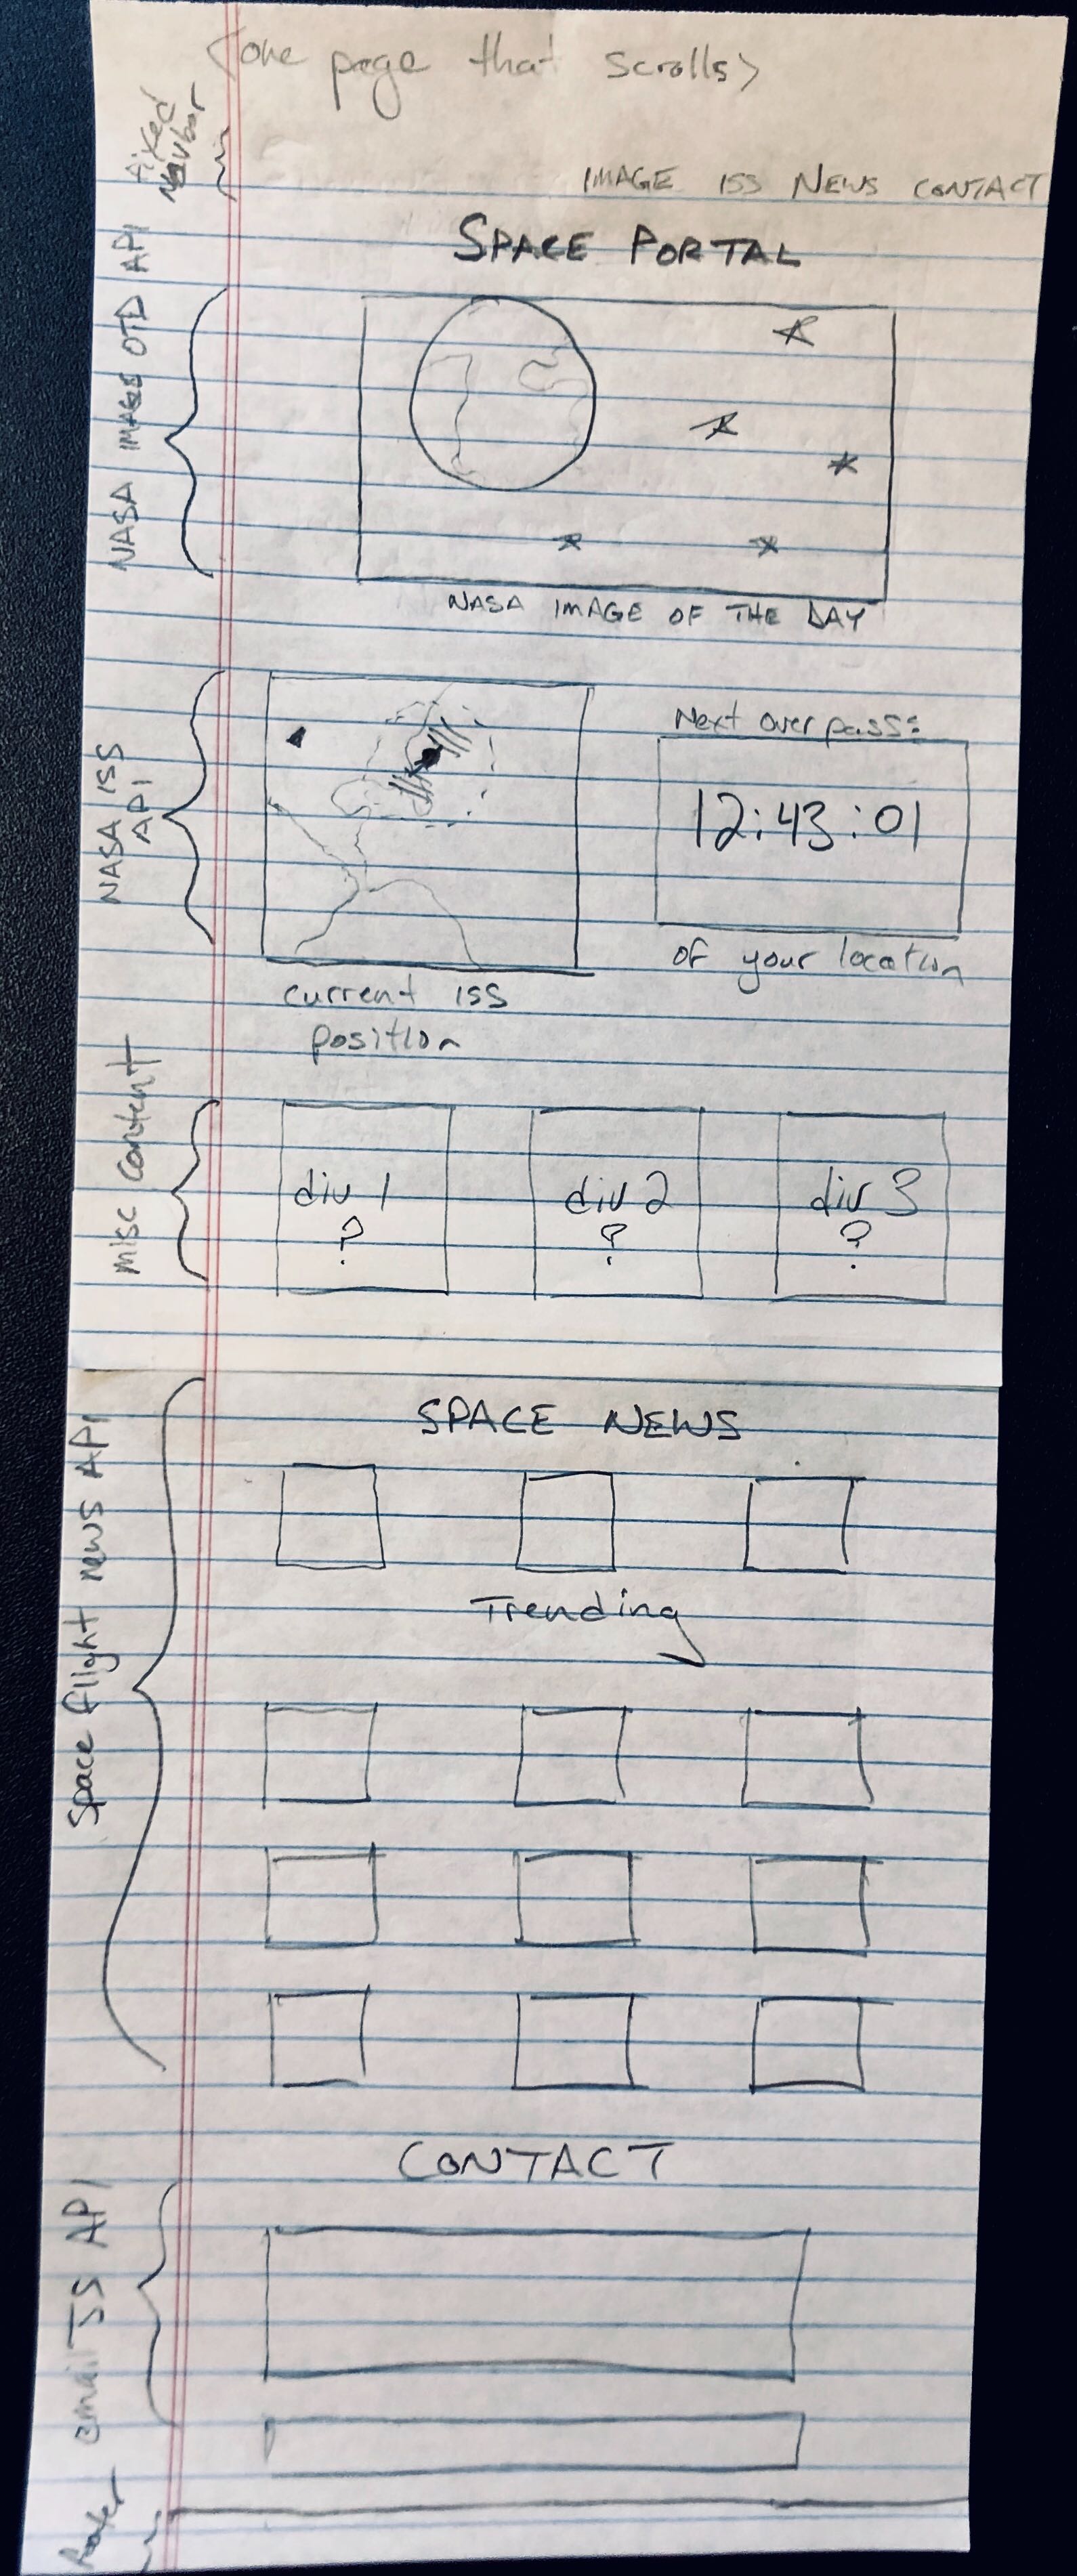 <one page that scrolls>
fixed
Navbar
IMAGE ISS NEWS CONTACT
SPACE PORTAL
NASA IMAGE OTD API
NASA IMAGE OF THE DAY
NASA ISS
API
Next overpass:
12:43:01
of your location
current ISS
position
misc content
div 1
?
div 2
?
div 3
?
Space flight news API
SPACE NEWS
Trending
CONTACT
emailJS API
footer